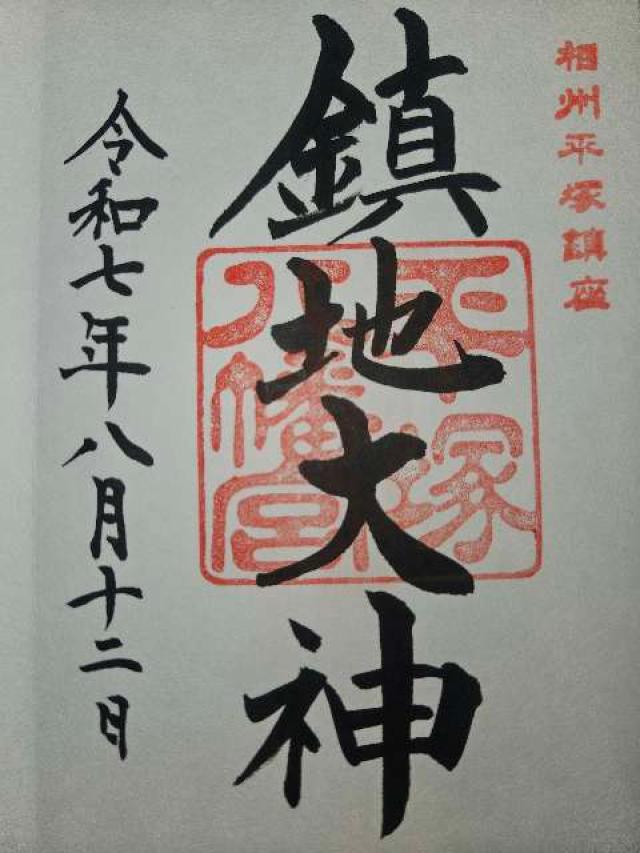 相州平塚鎮座
鎮地大神
平塚
八幡宮
令和七年八月十二日